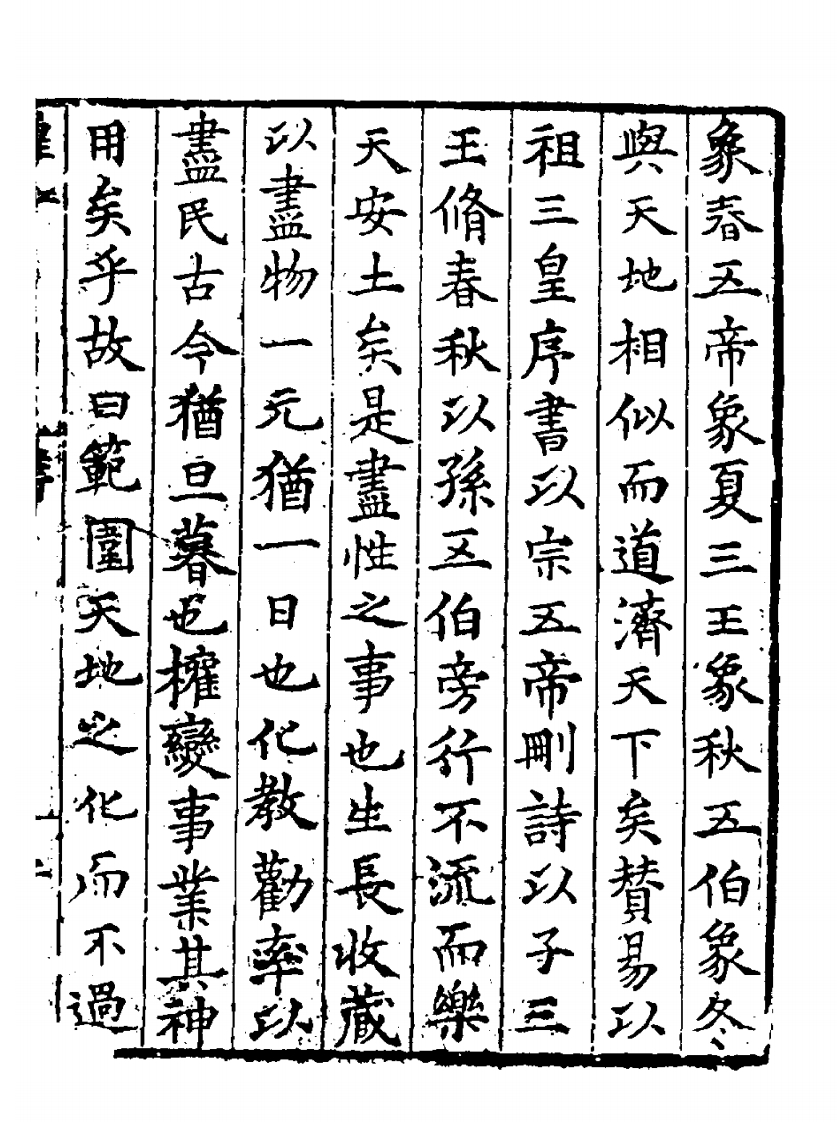 象春五帝象夏三王象秋五伯象冬
與天地相似而道濟天下矣贊易以
祖三皇序書以宗五帝刪詩以子三
王脩春秋以孫五伯旁行不流而樂
天安土矣是盡性之事也生長收藏
以盡物一元猶一日也化教勸率以
盡民古今猶旦暮也權變事業其神
用矣乎故曰範圍天地之化而不過